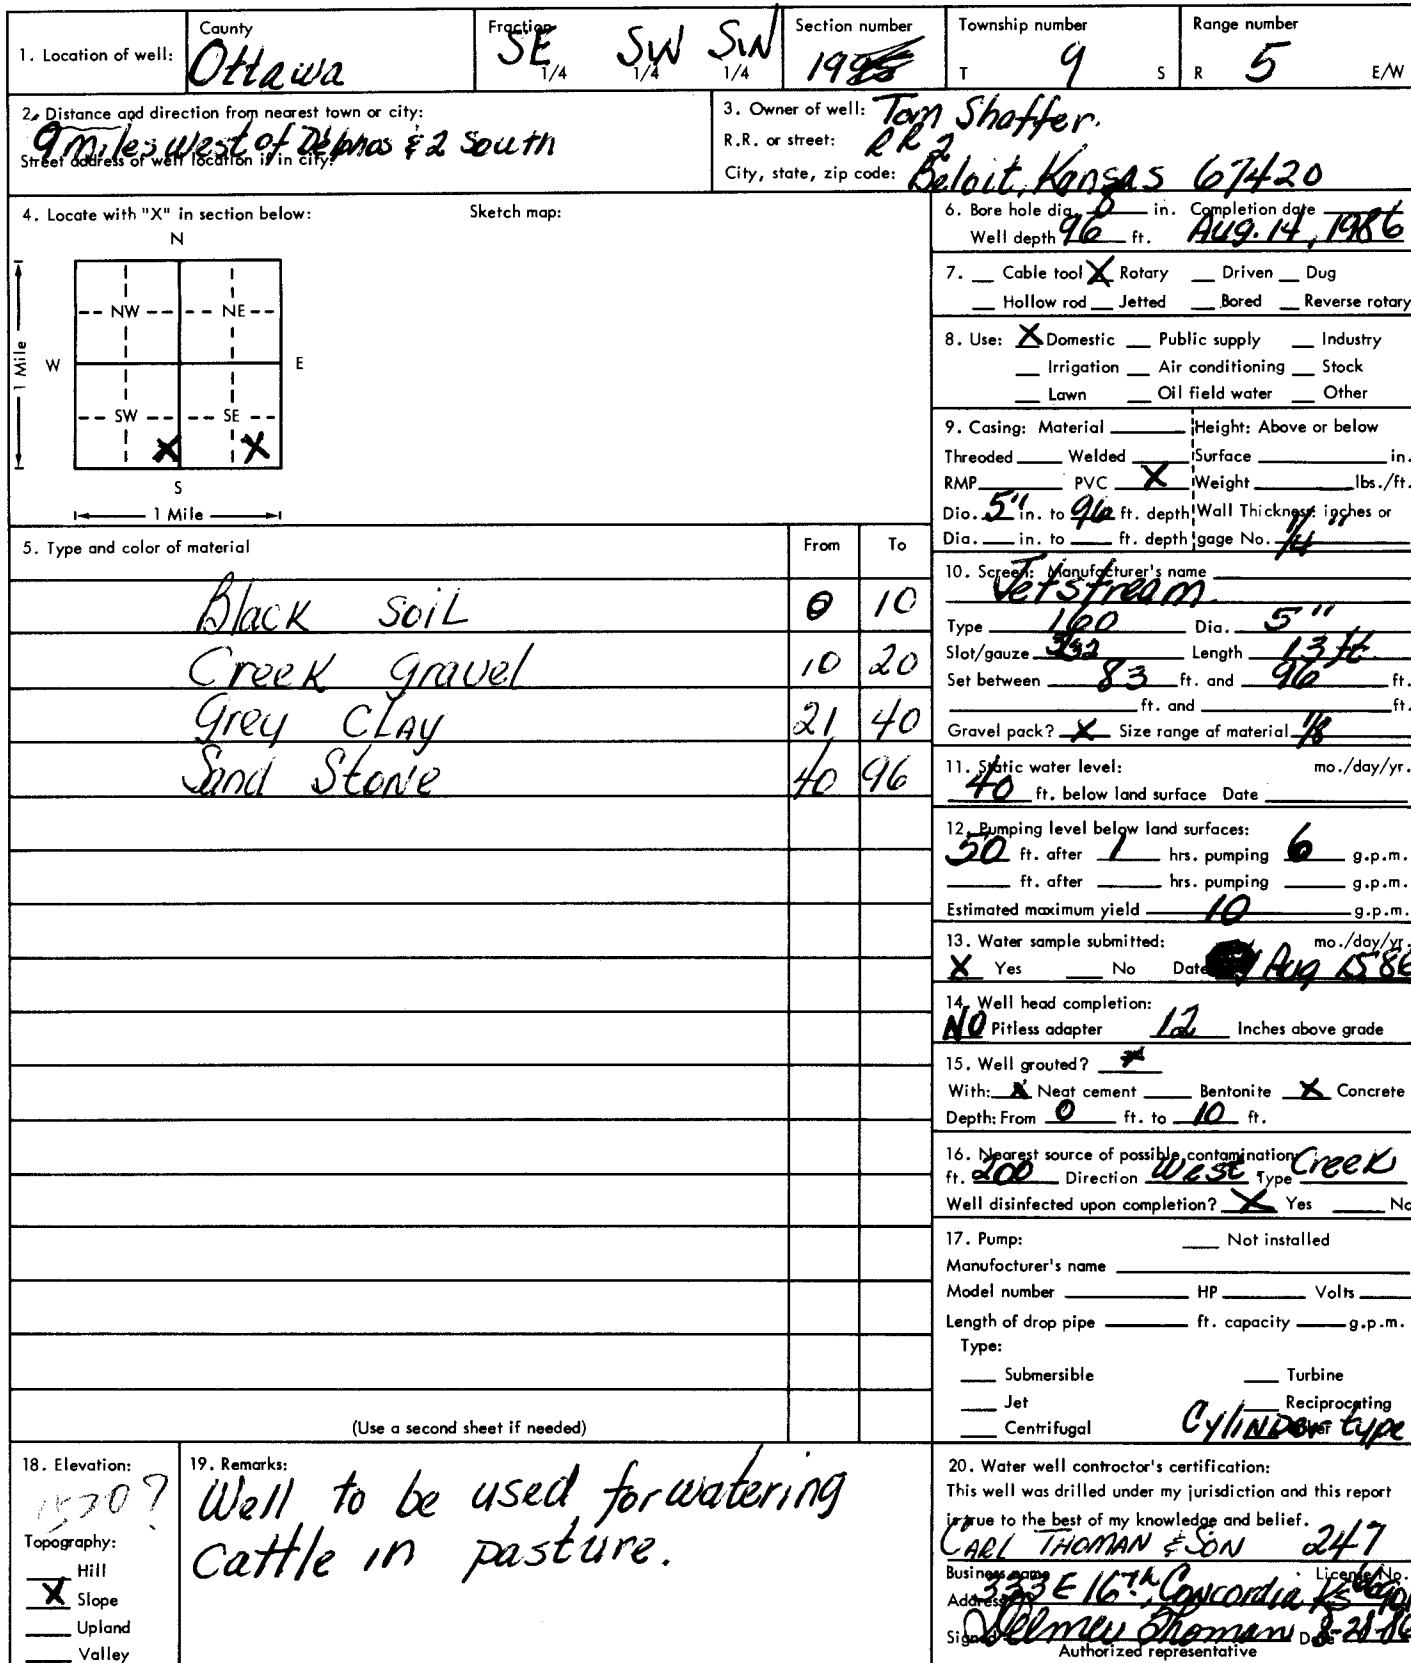 1. Location of well:
County
Ottawa
Fraction
SE 1/4 SW 1/4 SW 1/4
Section number
19
Township number
T 9 S
Range number
R 5 E/W
2. Distance and direction from nearest town or city:
9 miles west of Delphos & 2 South
Street address of well location if in city:
3. Owner of well: Tom Shaffer.
R.R. or street: RR 2
City, state, zip code: Beloit, Kansas 67420
4. Locate with "X" in section below:
Sketch map:
N
NW NE
1 Mile W E
SW SE
X X
S
1 Mile
6. Bore hole dia. 8 in. Completion date
Well depth 96 ft. Aug. 14, 1986
7. Cable tool X Rotary Driven Dug
Hollow rod Jetted Bored Reverse rotary
8. Use: X Domestic Public supply Industry
Irrigation Air conditioning Stock
Lawn Oil field water Other
9. Casing: Material Height: Above or below
Threaded Welded Surface in.
RMP PVC X Weight lbs./ft.
Dia. 5" in. to 96 ft. depth Wall Thickness: inches or
Dia. in. to ft. depth gage No. 1/4"
5. Type and color of material From To
Black Soil 0 10
Creek gravel 10 20
Grey Clay 21 40
Sand Stone 40 96
(Use a second sheet if needed)
10. Screen: Manufacturer's name
Jetstream
Type 160 Dia. 5"
Slot/gauze Length 13 ft
Set between 83 ft. and 96 ft.
ft. and ft.
Gravel pack? X Size range of material 1/8
11. Static water level: mo./day/yr.
40 ft. below land surface Date
12. Pumping level below land surfaces:
50 ft. after 1 hrs. pumping 6 g.p.m.
ft. after hrs. pumping g.p.m.
Estimated maximum yield 10 g.p.m.
13. Water sample submitted: mo./day/yr.
X Yes No Date Aug 15 86
14. Well head completion:
NO Pitless adapter 12 Inches above grade
15. Well grouted?
With: X Neat cement Bentonite X Concrete
Depth: From 0 ft. to 10 ft.
16. Nearest source of possible contamination:
ft. 200 Direction West Type Creek
Well disinfected upon completion? X Yes No
17. Pump: Not installed
Manufacturer's name
Model number HP Volts
Length of drop pipe ft. capacity g.p.m.
Type:
Submersible Turbine
Jet Reciprocating
Centrifugal Cylinder type
18. Elevation:
1570?
Topography:
Hill
X Slope
Upland
Valley
19. Remarks:
Well to be used for watering
Cattle in pasture.
20. Water well contractor's certification:
This well was drilled under my jurisdiction and this report
is true to the best of my knowledge and belief.
Carl Thoman & Son 247
Business name License No.
Address 333 E 16th, Concordia Ks
Signed Delmer Thoman Date 8-28-86
Authorized representative